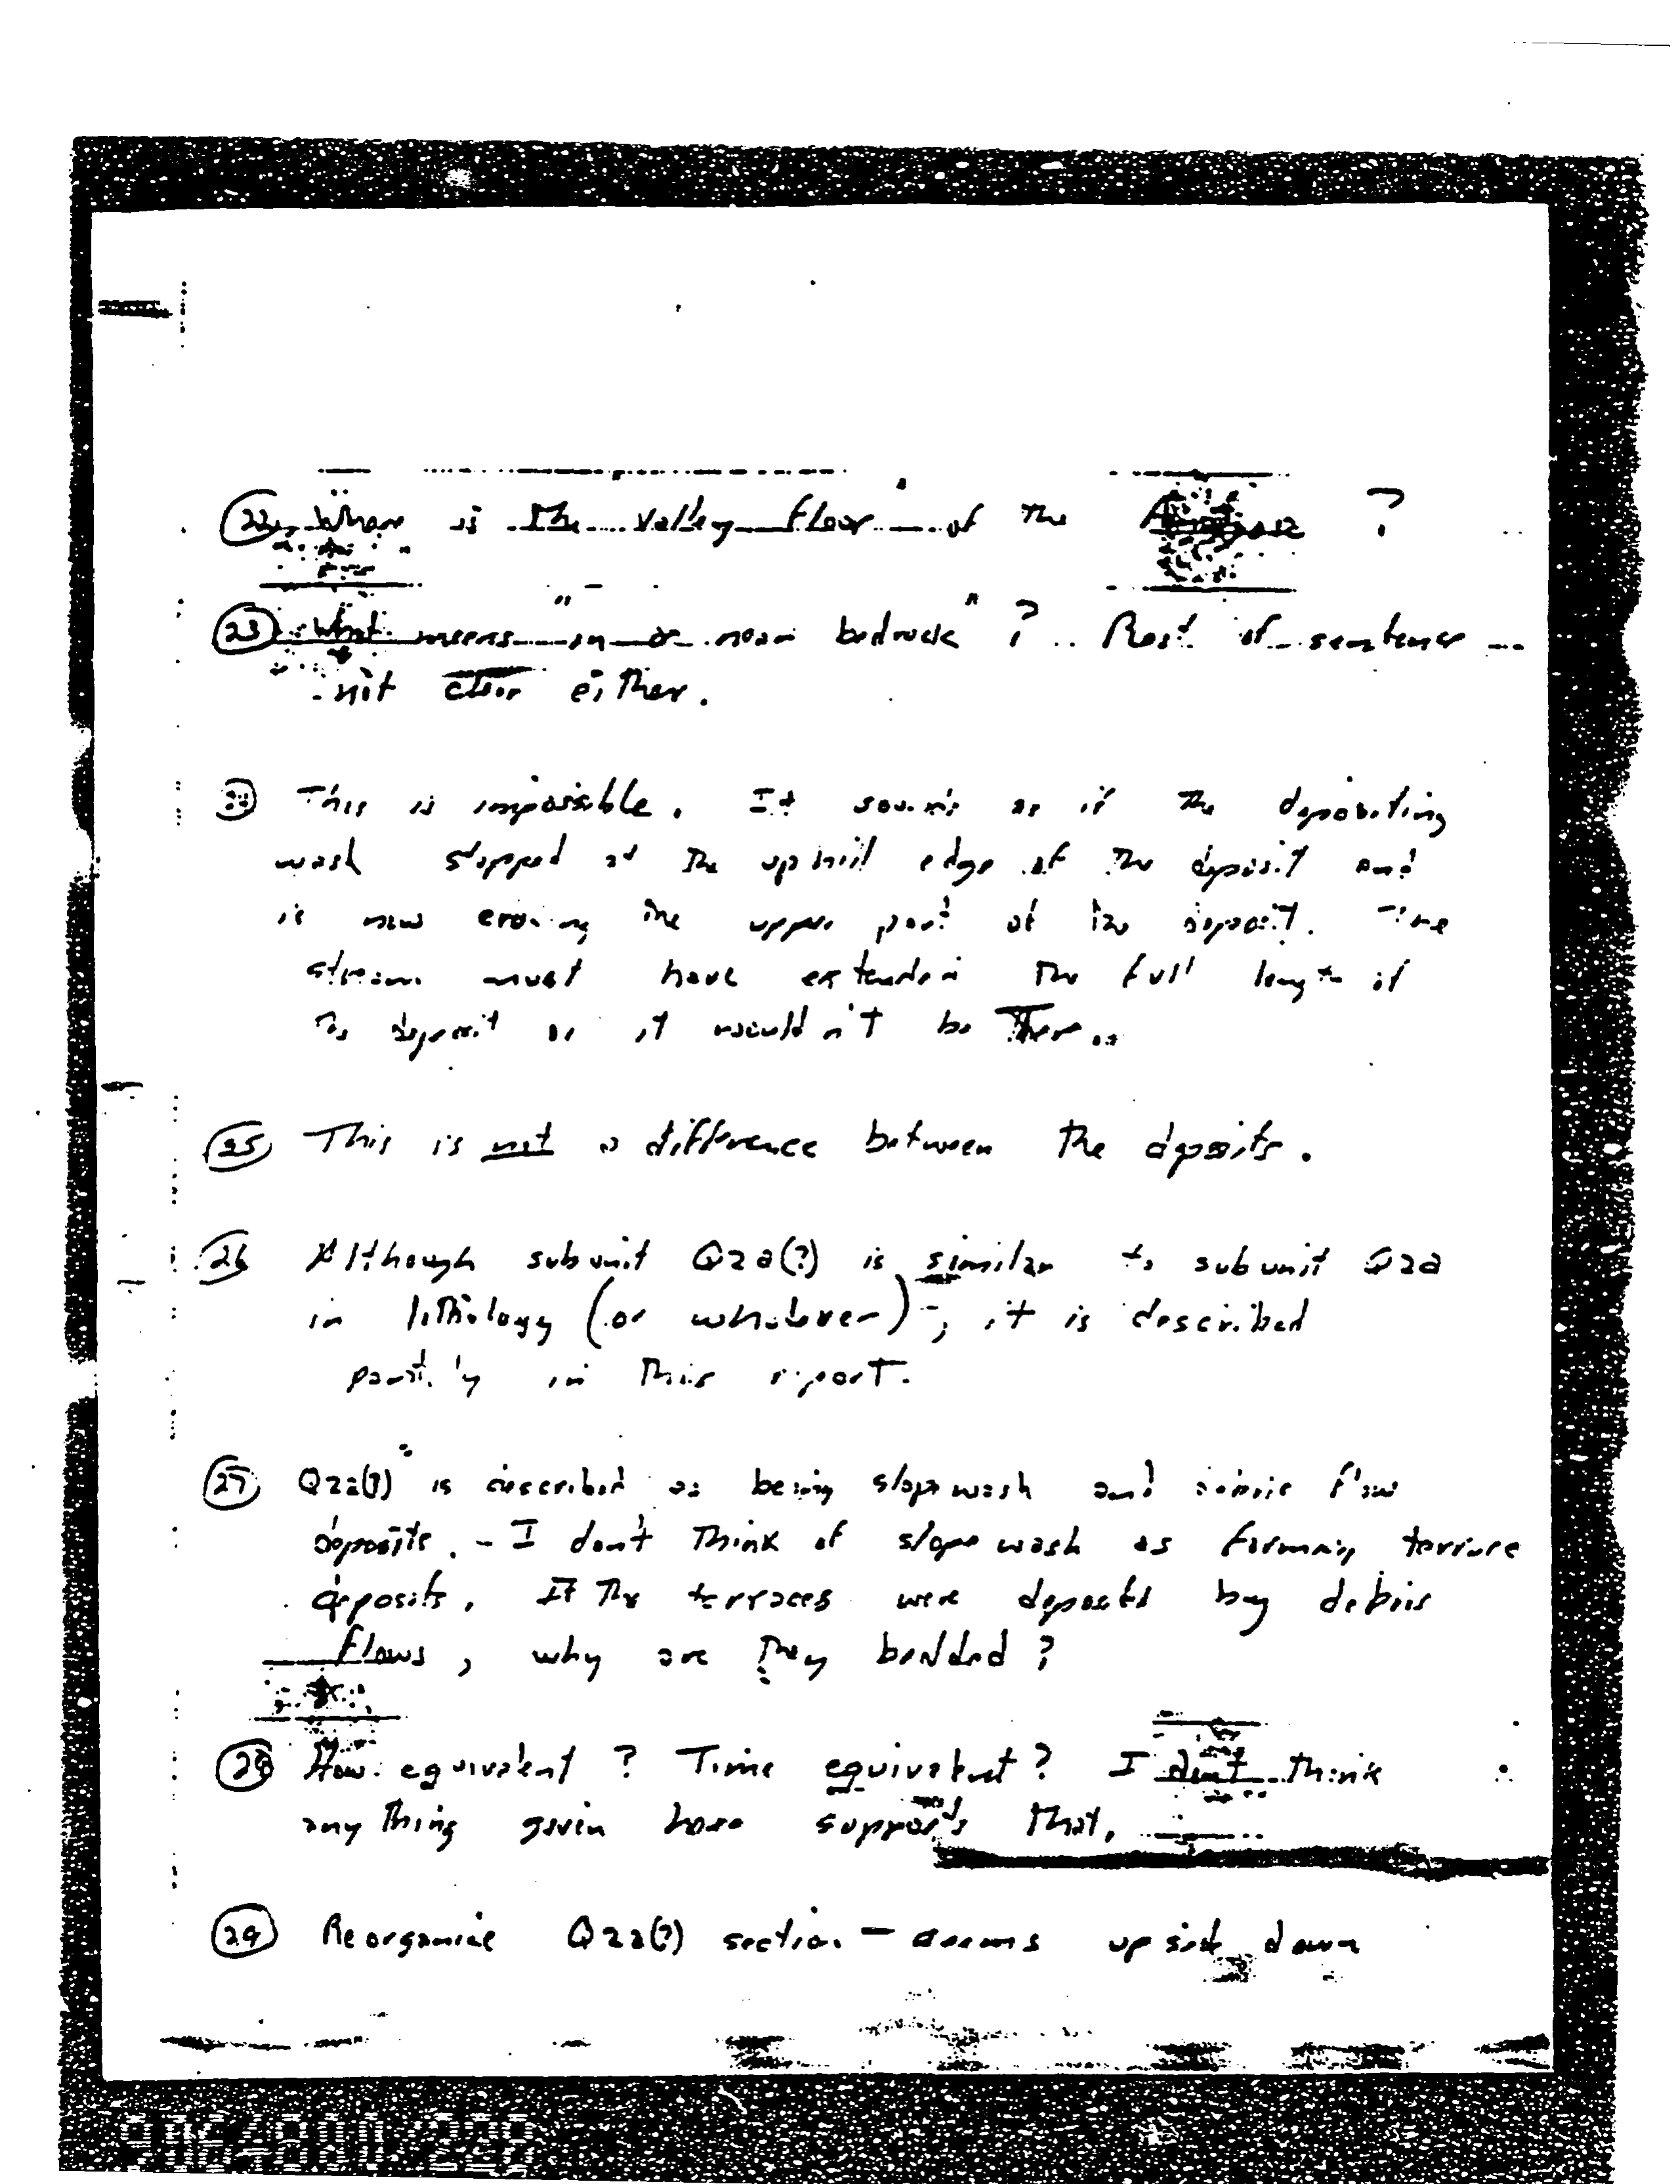 (22) Where is the valley floor of the ?
(23) What means "in or near bedrock"? Rest of sentence
not clear either.
(24) This is impossible. It sounds as if the depositing
wash stopped at the uphill edge of the deposit and
is now eroding the upper part of the deposit. The
stream must have extended the full length of
the deposit or it wouldn't be there.
(25) This is not a difference between the deposits.
(26) Although subunit Q2a(?) is similar to subunit Q2a
in lithology (or whatever), it is described
partly in this report.
(27) Q2a(?) is described as being slope wash and debris flow
deposits. - I don't think of slope wash as forming terrace
deposits. If the terraces were deposited by debris
flows, why are they bedded?
(28) How equivalent? Time equivalent? I don't think
anything given here supports that.
(29) Reorganize Q2a(?) section - seems upside down